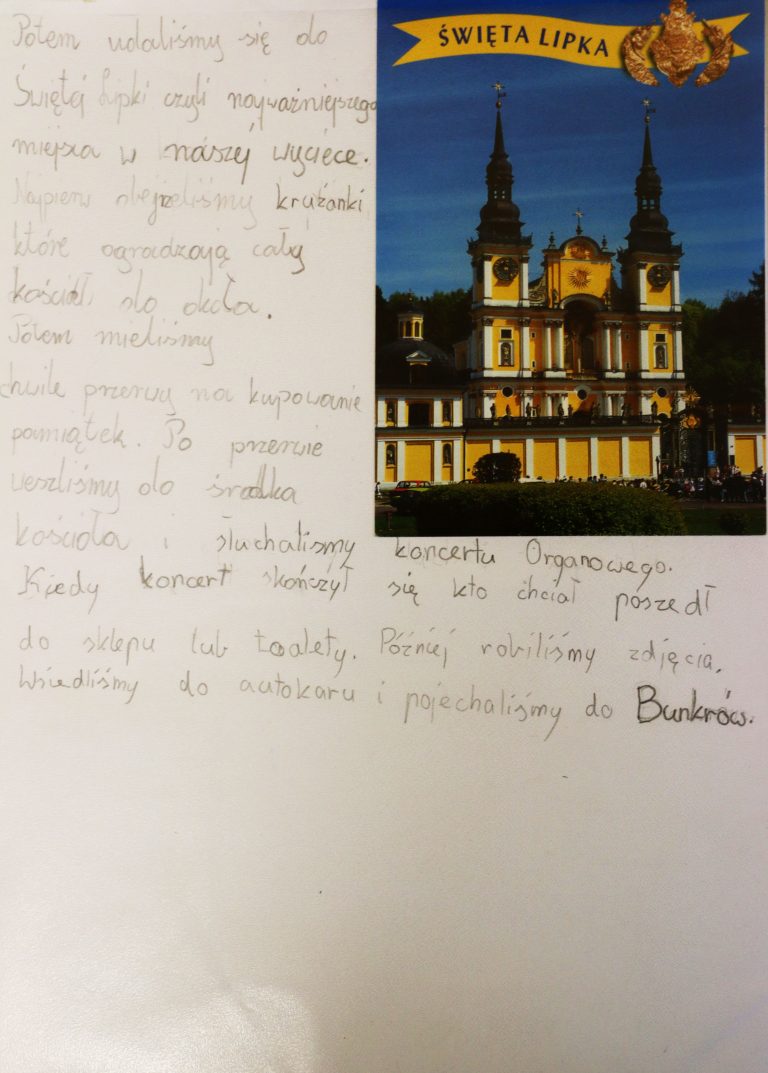 Potem udaliśmy się do
Świętej Lipki czyli najważniejszego
miejsca w naszej wyciece.
Najpierw obejrzeliśmy krużanki
które ogradzają cały
kościół do okoła.
Potem mieliśmy
chwile przerwy na kupowanie
pamiątek. Po przerwie
weszliśmy do środka
kościoła i słuchaliśmy koncertu Organowego.
Kiedy koncert skończył się kto chciał poszedł
do sklepu lub toalety. Później robiliśmy zdjęcia.
Wsiedliśmy do autokaru i pojechaliśmy do Bunkrów.
ŚWIĘTA LIPKA